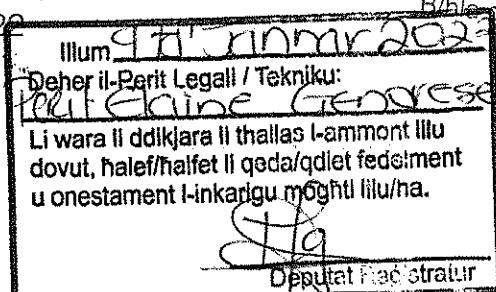 Illum 9 ta' Jannar 202
Deher il-Perit Legali / Tekniku:
Perit Elaine Genovese
Li wara li ddikjara li tħallas l-ammont lilu
dovut, ħalef/ħalfet li qeda/qdiet fedelment
u onestament l-inkarigu mogħti lilu/ha.
Deputat Reġistratur